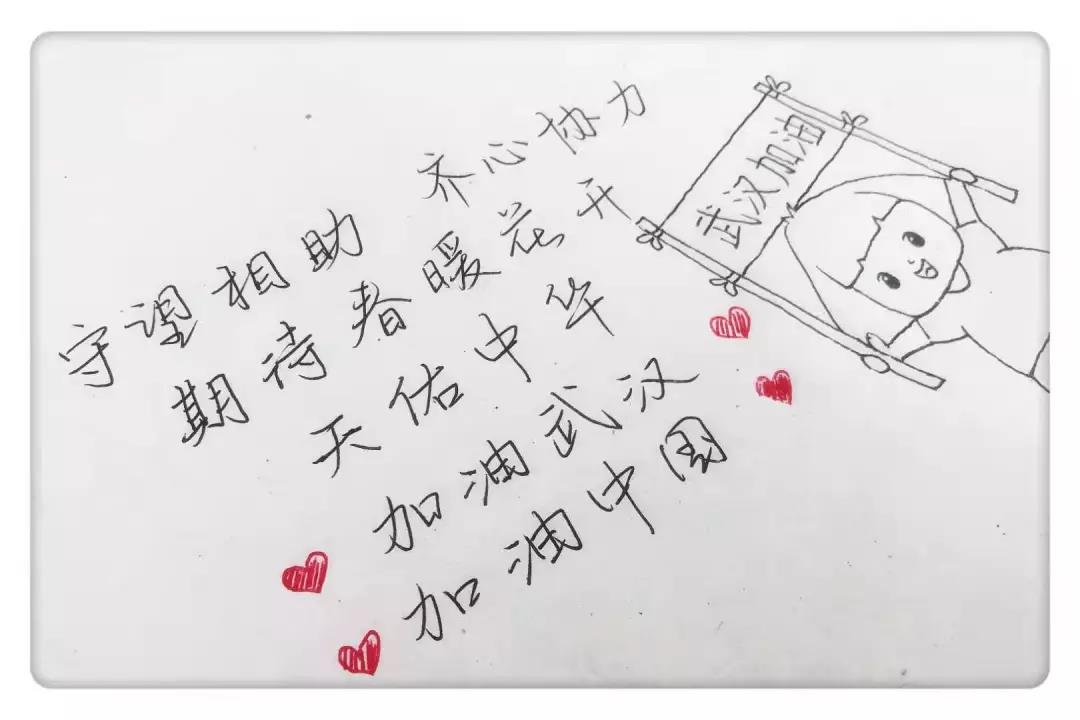 守望相助 齐心协力
期待春暖花开
天佑中华
加油武汉
加油中国
武汉加油